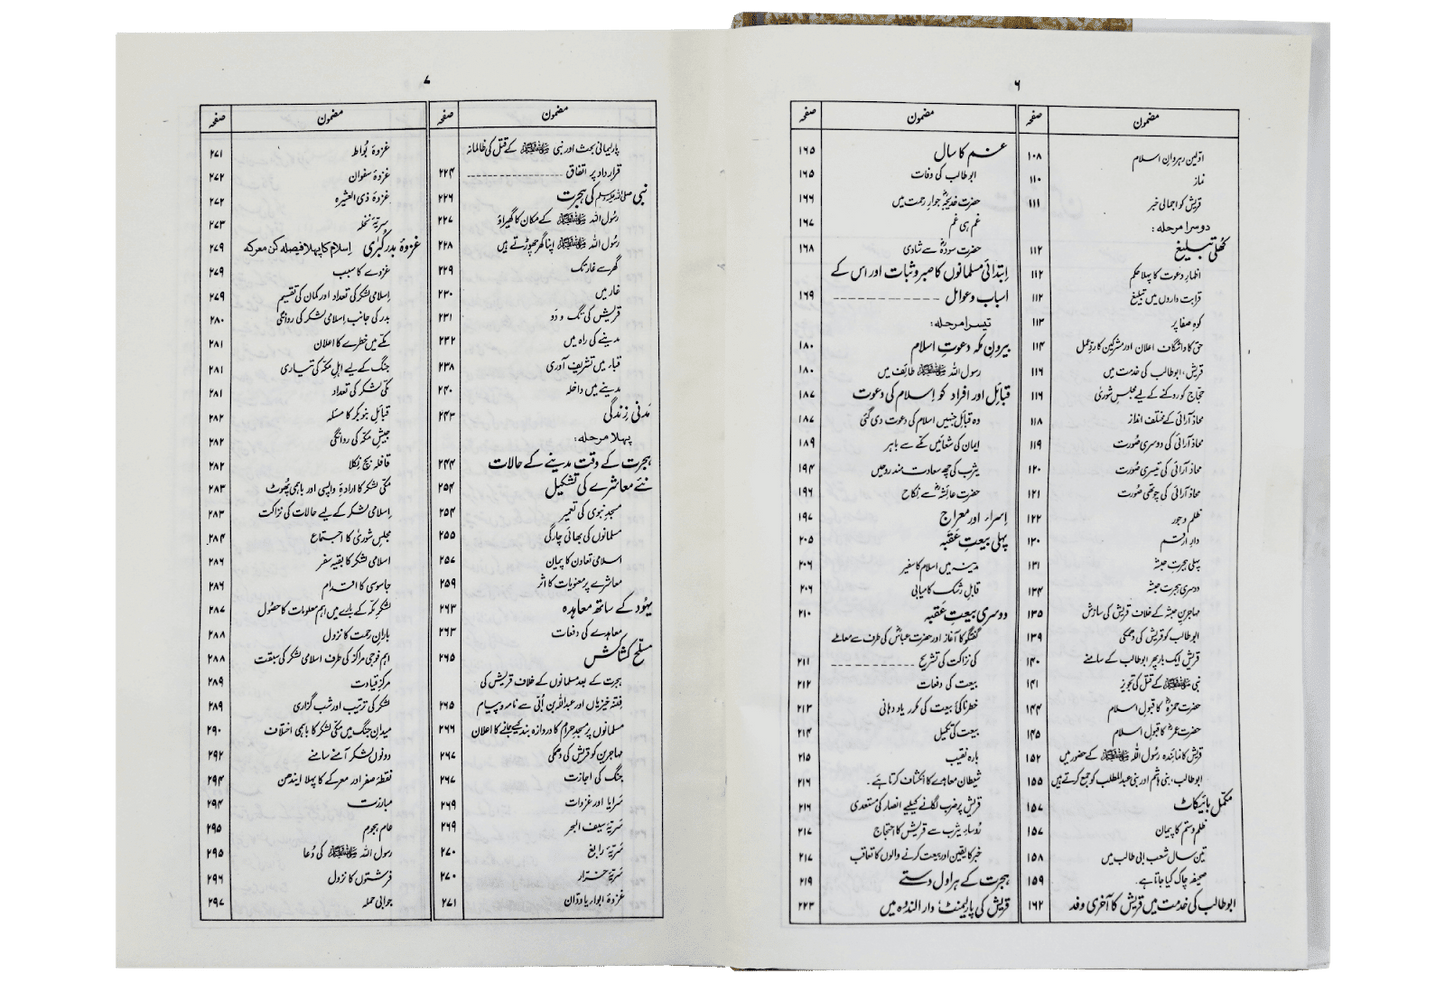 ۶
مضمون صفحہ
اوّلین رہروانِ اسلام ۱۰۸
نماز ۱۱۰
قریش کو اجمالی خبر ۱۱۱
دوسرا مرحلہ:
کھلی تبلیغ ۱۱۲
اظہارِ دعوت کا پہلا حکم ۱۱۲
قرابت داروں میں تبلیغ ۱۱۲
کوہِ صفا پر ۱۱۳
حق کا واشگاف اعلان اور مشرکین کا ردِّ عمل ۱۱۴
قریش، ابوطالب کی خدمت میں ۱۱۶
حجاج کو روکنے کے لیے مجلسِ شوریٰ ۱۱۶
محاذ آرائی کے مختلف انداز ۱۱۸
محاذ آرائی کی دوسری صُورت ۱۱۹
محاذ آرائی کی تیسری صُورت ۱۲۰
محاذ آرائی کی چوتھی صُورت ۱۲۱
ظلم و جور ۱۲۲
دارِ ارقم ۱۳۰
پہلی ہجرتِ حبشہ ۱۳۱
دوسری ہجرتِ حبشہ ۱۳۴
مہاجرینِ حبشہ کے خلاف قریش کی سازش ۱۳۵
ابوطالب کو قریش کی دھمکی ۱۳۹
قریش ایک بار پھر ابوطالب کے سامنے ۱۴۰
نبی ﷺ کے قتل کی تجویز ۱۴۱
حضرت حمزہؓ کا قبولِ اسلام ۱۴۴
حضرت عمرؓ کا قبولِ اسلام ۱۴۵
قریش کا نمائندہ رسُول اللہ ﷺ کے حضور میں ۱۵۲
ابوطالب، بنی ہاشم اور بنی عبدالمطلب کو جمع کرتے ہیں ۱۵۵
مکمل بائیکاٹ ۱۵۷
ظلم و ستم کا پیمان ۱۵۷
تین سال شعبِ ابی طالب میں ۱۵۸
صحیفہ چاک کیا جاتا ہے ۔ ۱۵۹
ابوطالب کی خدمت میں قریش کا آخری وفد ۱۶۲
مضمون صفحہ
غم کا سال ۱۶۵
ابوطالب کی وفات ۱۶۵
حضرت خدیجہؓ جوارِ رحمت میں ۱۶۶
غم ہی غم ۱۶۷
حضرت سودہؓ سے شادی ۱۶۸
اِبتدائی مسلمانوں کا صبر و ثبات اور اس کے
اسباب و عوامل ۱۶۹
تیسرا مرحلہ:
بیرونِ مکّہ دعوتِ اسلام ۱۸۰
رسُول اللہ ﷺ طائف میں ۱۸۰
قبائل اور افراد کو اِسلام کی دعوت ۱۸۷
وہ قبائل جنہیں اسلام کی دعوت دی گئی ۱۸۷
ایمان کی شعاعیں مکّے سے باہر ۱۸۹
یثرب کی چھ سعادت مند روحیں ۱۹۴
حضرت عائشہؓ سے نکاح ۱۹۶
اِسراء اور معراج ۱۹۷
پہلی بیعتِ عَقَبہ ۲۰۵
مدینہ میں اسلام کا سفیر ۲۰۶
قابلِ رشک کامیابی ۲۰۶
دوسری بیعتِ عَقبہ ۲۱۰
گفتگو کا آغاز اور حضرت عباسؓ کی طرف سے معاملے
کی نزاکت کی تشریح ۲۱۱
بیعت کی دفعات ۲۱۲
خطرناکیٔ بیعت کی مکرر یاد دہانی ۲۱۳
بیعت کی تکمیل ۲۱۴
بارہ نقیب ۲۱۵
شیطان معاہدے کا انکشاف کرتا ہے ۔ ۲۱۶
قریش پر ضرب لگانے کیلیے انصار کی مستعدی ۲۱۶
رؤساءِ یثرب سے قریش کا احتجاج ۲۱۷
خبر کا یقین اور بیعت کرنے والوں کا تعاقب ۲۱۷
ہجرت کے ہراول دستے ۲۱۹
قریش کی پارلیمنٹ دار الندوہ میں ۲۲۳
۷
مضمون صفحہ
پارلیمانی بحث اور نبی ﷺ کے قتل کی ظالمانہ
قرارداد پر اتفاق ۲۲۴
نبی ﷺ کی ہجرت ۲۲۶
رسُول اللہ ﷺ کے مکان کا گھیراؤ ۲۲۷
رسُول اللہ ﷺ اپنا گھر چھوڑتے ہیں ۲۲۸
گھر سے غار تک ۲۲۹
غار میں ۲۳۰
قریش کی تگ و دَو ۲۳۱
مدینے کی راہ میں ۲۳۲
قباء میں تشریف آوری ۲۳۸
مدینے میں داخلہ ۲۴۰
مَدنی زِندگی ۲۴۳
پہلا مرحلہ:
ہجرت کے وقت مدینے کے حالات ۲۴۴
نئے معاشرے کی تشکیل ۲۵۴
مسجدِ نبوی کی تعمیر ۲۵۴
مسلمانوں کی بھائی چارگی ۲۵۵
اسلامی تعاون کا پیمان ۲۵۷
معاشرے پر معنویات کا اثر ۲۵۹
یہُود کے ساتھ معاہدہ ۲۶۳
معاہدے کی دفعات ۲۶۳
مسلح کشاکش ۲۶۵
ہجرت کے بعد مسلمانوں کے خلاف قریش کی
فِتنہ خیزیاں اور عبداللہ بن اُبَیّ سے نامہ و پیام ۲۶۵
مسلمانوں پر مسجدِ حرام کا دروازہ بند کیے جانے کا اعلان ۲۶۶
مہاجرین کو قریش کی دھمکی ۲۶۷
جنگ کی اجازت ۲۶۷
سَرایا اور غزوات ۲۶۹
سَرِیّۂ سیف البحر ۲۶۹
سَرِیّۂ رابغ ۲۷۰
سَرِیّۂ خرّار ۲۷۰
غزوۂ ابواء یا ودّان ۲۷۱
مضمون صفحہ
غزوۂ بُواط ۲۷۱
غزوۂ سفوان ۲۷۲
غزوۂ ذی العشیرہ ۲۷۲
سَرِیّۂ نخلہ ۲۷۳
غزوۂ بدر کُبریٰ اِسلام کا پہلا فیصلہ کن معرکہ ۲۷۹
غزوے کا سبب ۲۷۹
اِسلامی لشکر کی تعداد اور کمان کی تقسیم ۲۷۹
بدر کی جانب اِسلامی لشکر کی روانگی ۲۸۰
مکّے میں خطرے کا اعلان ۲۸۱
جنگ کے لیے اہلِ مکّہ کی تیاری ۲۸۱
مکّی لشکر کی تعداد ۲۸۱
قبائلِ بنو بکر کا مسئلہ ۲۸۲
جیشِ مکّہ کی روانگی ۲۸۲
قافلہ بچ نِکلا ۲۸۲
مکّی لشکر کا ارادۂ واپسی اور باہمی پُھوٹ ۲۸۳
اِسلامی لشکر کے لیے حالات کی نزاکت ۲۸۳
مجلسِ شوریٰ کا اجتماع ۲۸۴
اسلامی لشکر کا بقیہ سفر ۲۸۶
جاسوسی کا اقدام ۲۸۶
لشکرِ مکّہ کے بارے میں اہم معلومات کا حصُول ۲۸۷
بارانِ رحمت کا نزول ۲۸۸
اہم فوجی مراکز کی طرف اسلامی لشکر کی سبقت ۲۸۸
مرکزِ قیادت ۲۸۹
لشکر کی ترتیب اور شب گزاری ۲۸۹
میدانِ جنگ میں مکّی لشکر کا باہمی اختلاف ۲۹۰
دونوں لشکر آمنے سامنے ۲۹۲
نقطۂ صفر اور معرکے کا پہلا ایندھن ۲۹۴
مبارزت ۲۹۴
عام ہجوم ۲۹۵
رسول اللہ ﷺ کی دُعا ۲۹۵
فرشتوں کا نزول ۲۹۶
جوابی حملہ ۲۹۷